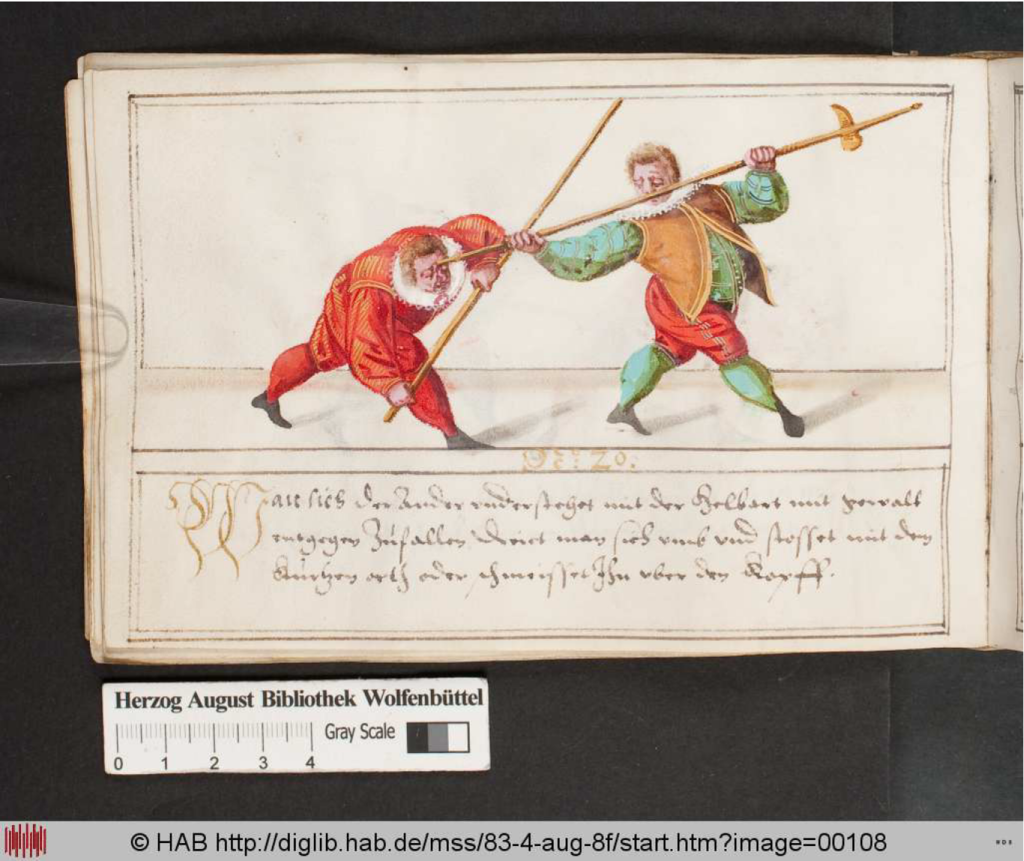 No: 20.
Wan sich der Ander understehet mit der Helbart mit gewalt
entgegen Zufallen, dreiet man sich umb und stosset mit dem
Kurtzen orth oder schmeisset Ihn uber den Kopff.
Herzog August Bibliothek Wolfenbüttel
Gray Scale
0 1 2 3 4
© HAB http://diglib.hab.de/mss/83-4-aug-8f/start.htm?image=00108